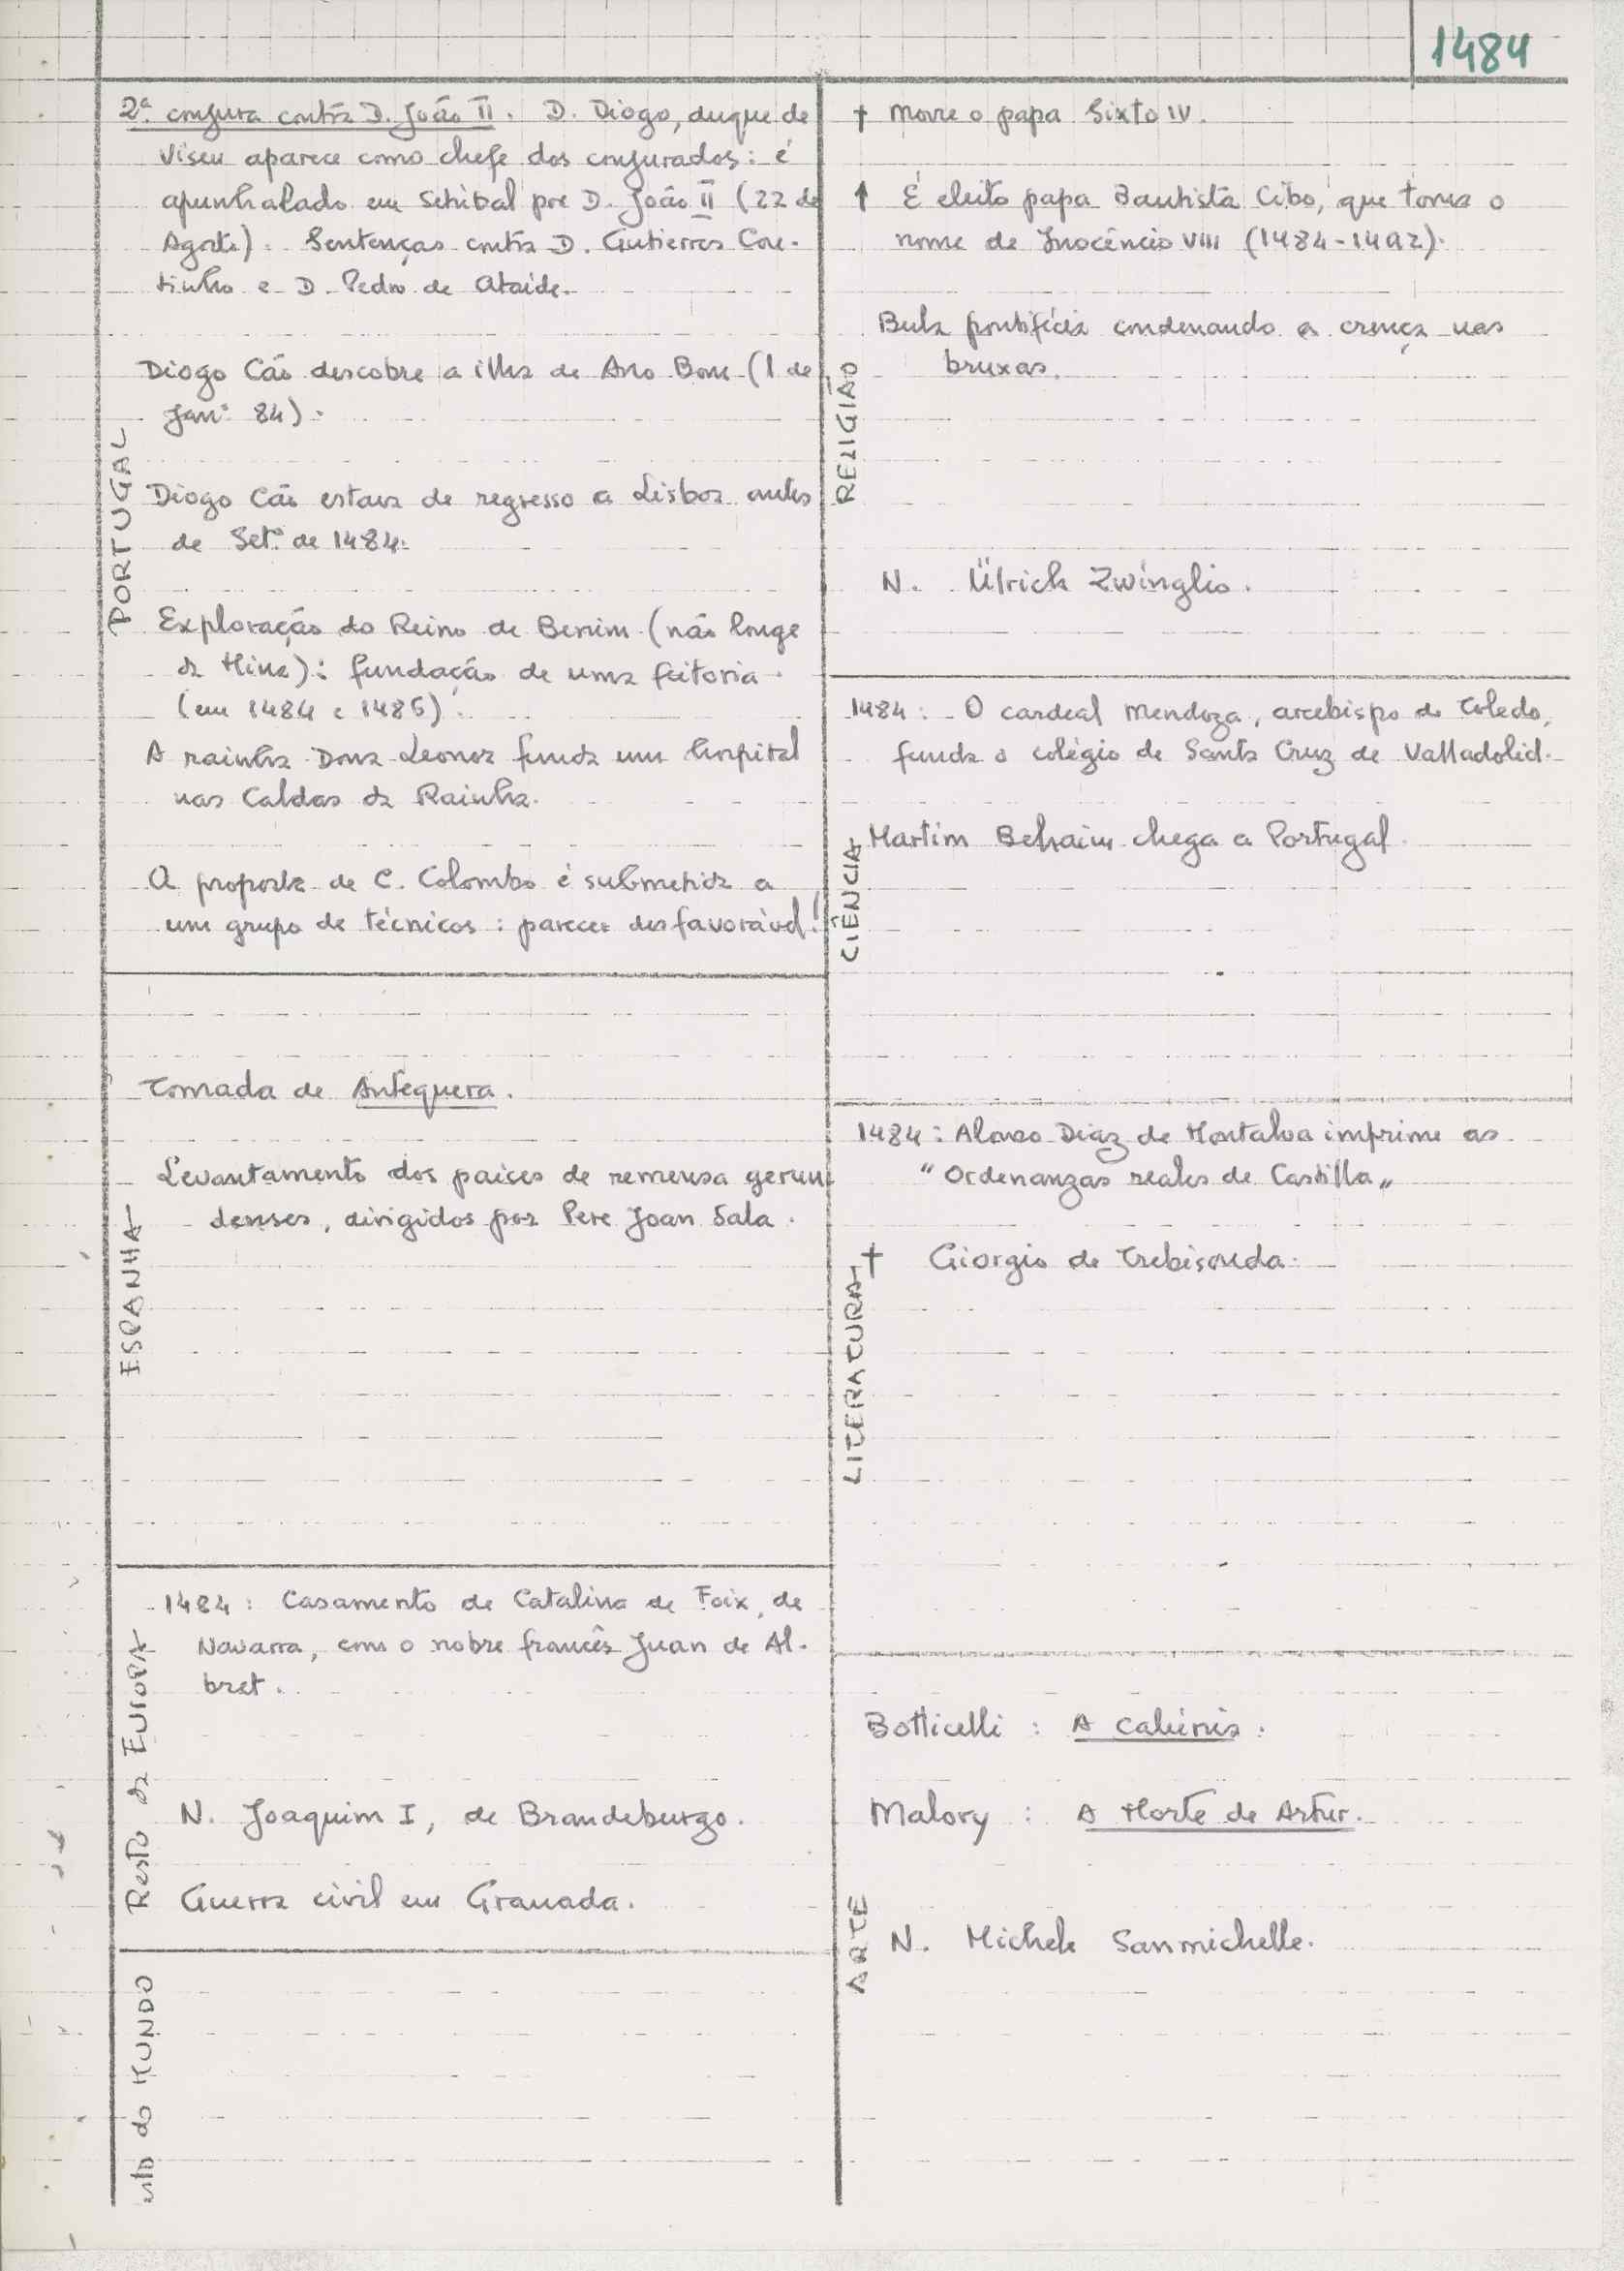 1484
PORTUGAL
2ª conjura contra D. João II. D. Diogo, duque de
Viseu aparece como chefe dos conjurados: é
apunhalado em Setúbal por D. João II (22 de
Agosto). Sentenças contra D. Gutierres Cou-
tinho e D. Pedro de Ataíde.
Diogo Cão descobre a ilha de Ano Bom (1 de
Janº 84).
Diogo Cão estava de regresso a Lisboa antes
de Setº de 1484.
Exploração do Reino de Benim (não longe
da Mina): fundação de uma feitoria
(em 1484 e 1486).
A rainha Dona Leonor funda um hospital
nas Caldas da Rainha.
A proposta de C. Colombo é submetida a
um grupo de técnicos: parecer desfavorável!
ESPANHA
Tomada de Antequera.
Levantamento dos paises de remensa gerun-
denses, dirigidos por Pere Joan Sala.
Resto da EUROPA
1484: Casamento de Catalina de Foix, de
Navarra, com o nobre francês Juan de Al-
bret.
N. Joaquim I, de Brandeburgo.
Guerra civil em Granada.
esto do MUNDO
RELIGIÃO
† Morre o papa Sixto IV.
↑ É eleito papa Bautista Cibo, que toma o
nome de Inocêncio VIII (1484-1492).
Bula pontifícia condenando a crença nas
bruxas.
N. Ülrich Zwinglio.
CIÊNCIA
1484: O cardeal Mendoza, arcebispo de Toledo,
funda o colégio de Santa Cruz de Valladolid.
Martim Behaim chega a Portugal.
LITERATURA
1484: Alonso Diaz de Montalva imprime as
"Ordenanzas reales de Castilla„
† Giorgio de Trebisonda.
ARTE
Botticelli: A Calúnia.
Malory: A Morte de Artur.
N. Michele Sanmichelle.